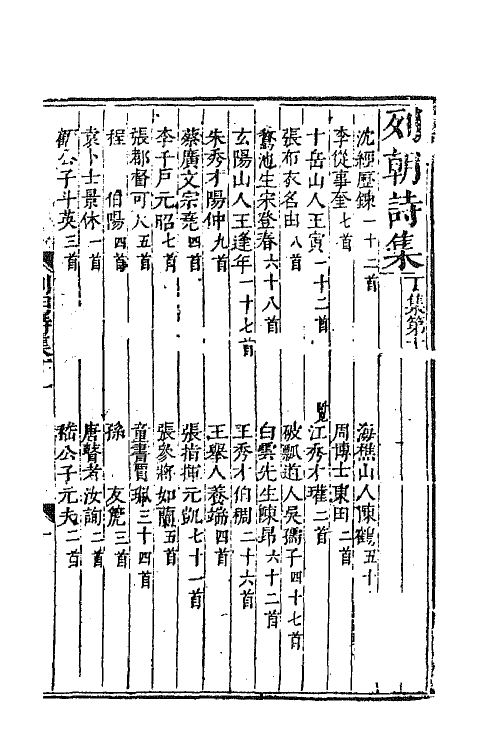 列朝詩集 丁集第十
沈經歷鍊一十二首 海樵山人陳鶴五十
李從事奎七首 周博士東田二首
十岳山人王寅一十二首 江秀才瓘二首
張布衣名由八首 破瓢道人吳孺子四十七首
鵞池生宋登春六十八首 白雲先生陳昂六十二首
玄陽山人王逢年一十七首 王秀才伯稠二十六首
朱秀才陽仲九首 王舉人養端四首
蔡廣文宗堯四首 張指揮元凱七十一首
李千戶元昭七首 張參將如蘭五首
張都督可大五首 童書賈珮三十四首
程 伯陽四首 孫 友箎三首
袁卜士景休一首 唐瞽者汝詢二首
公子斗英三首 嵇公子元夫二首